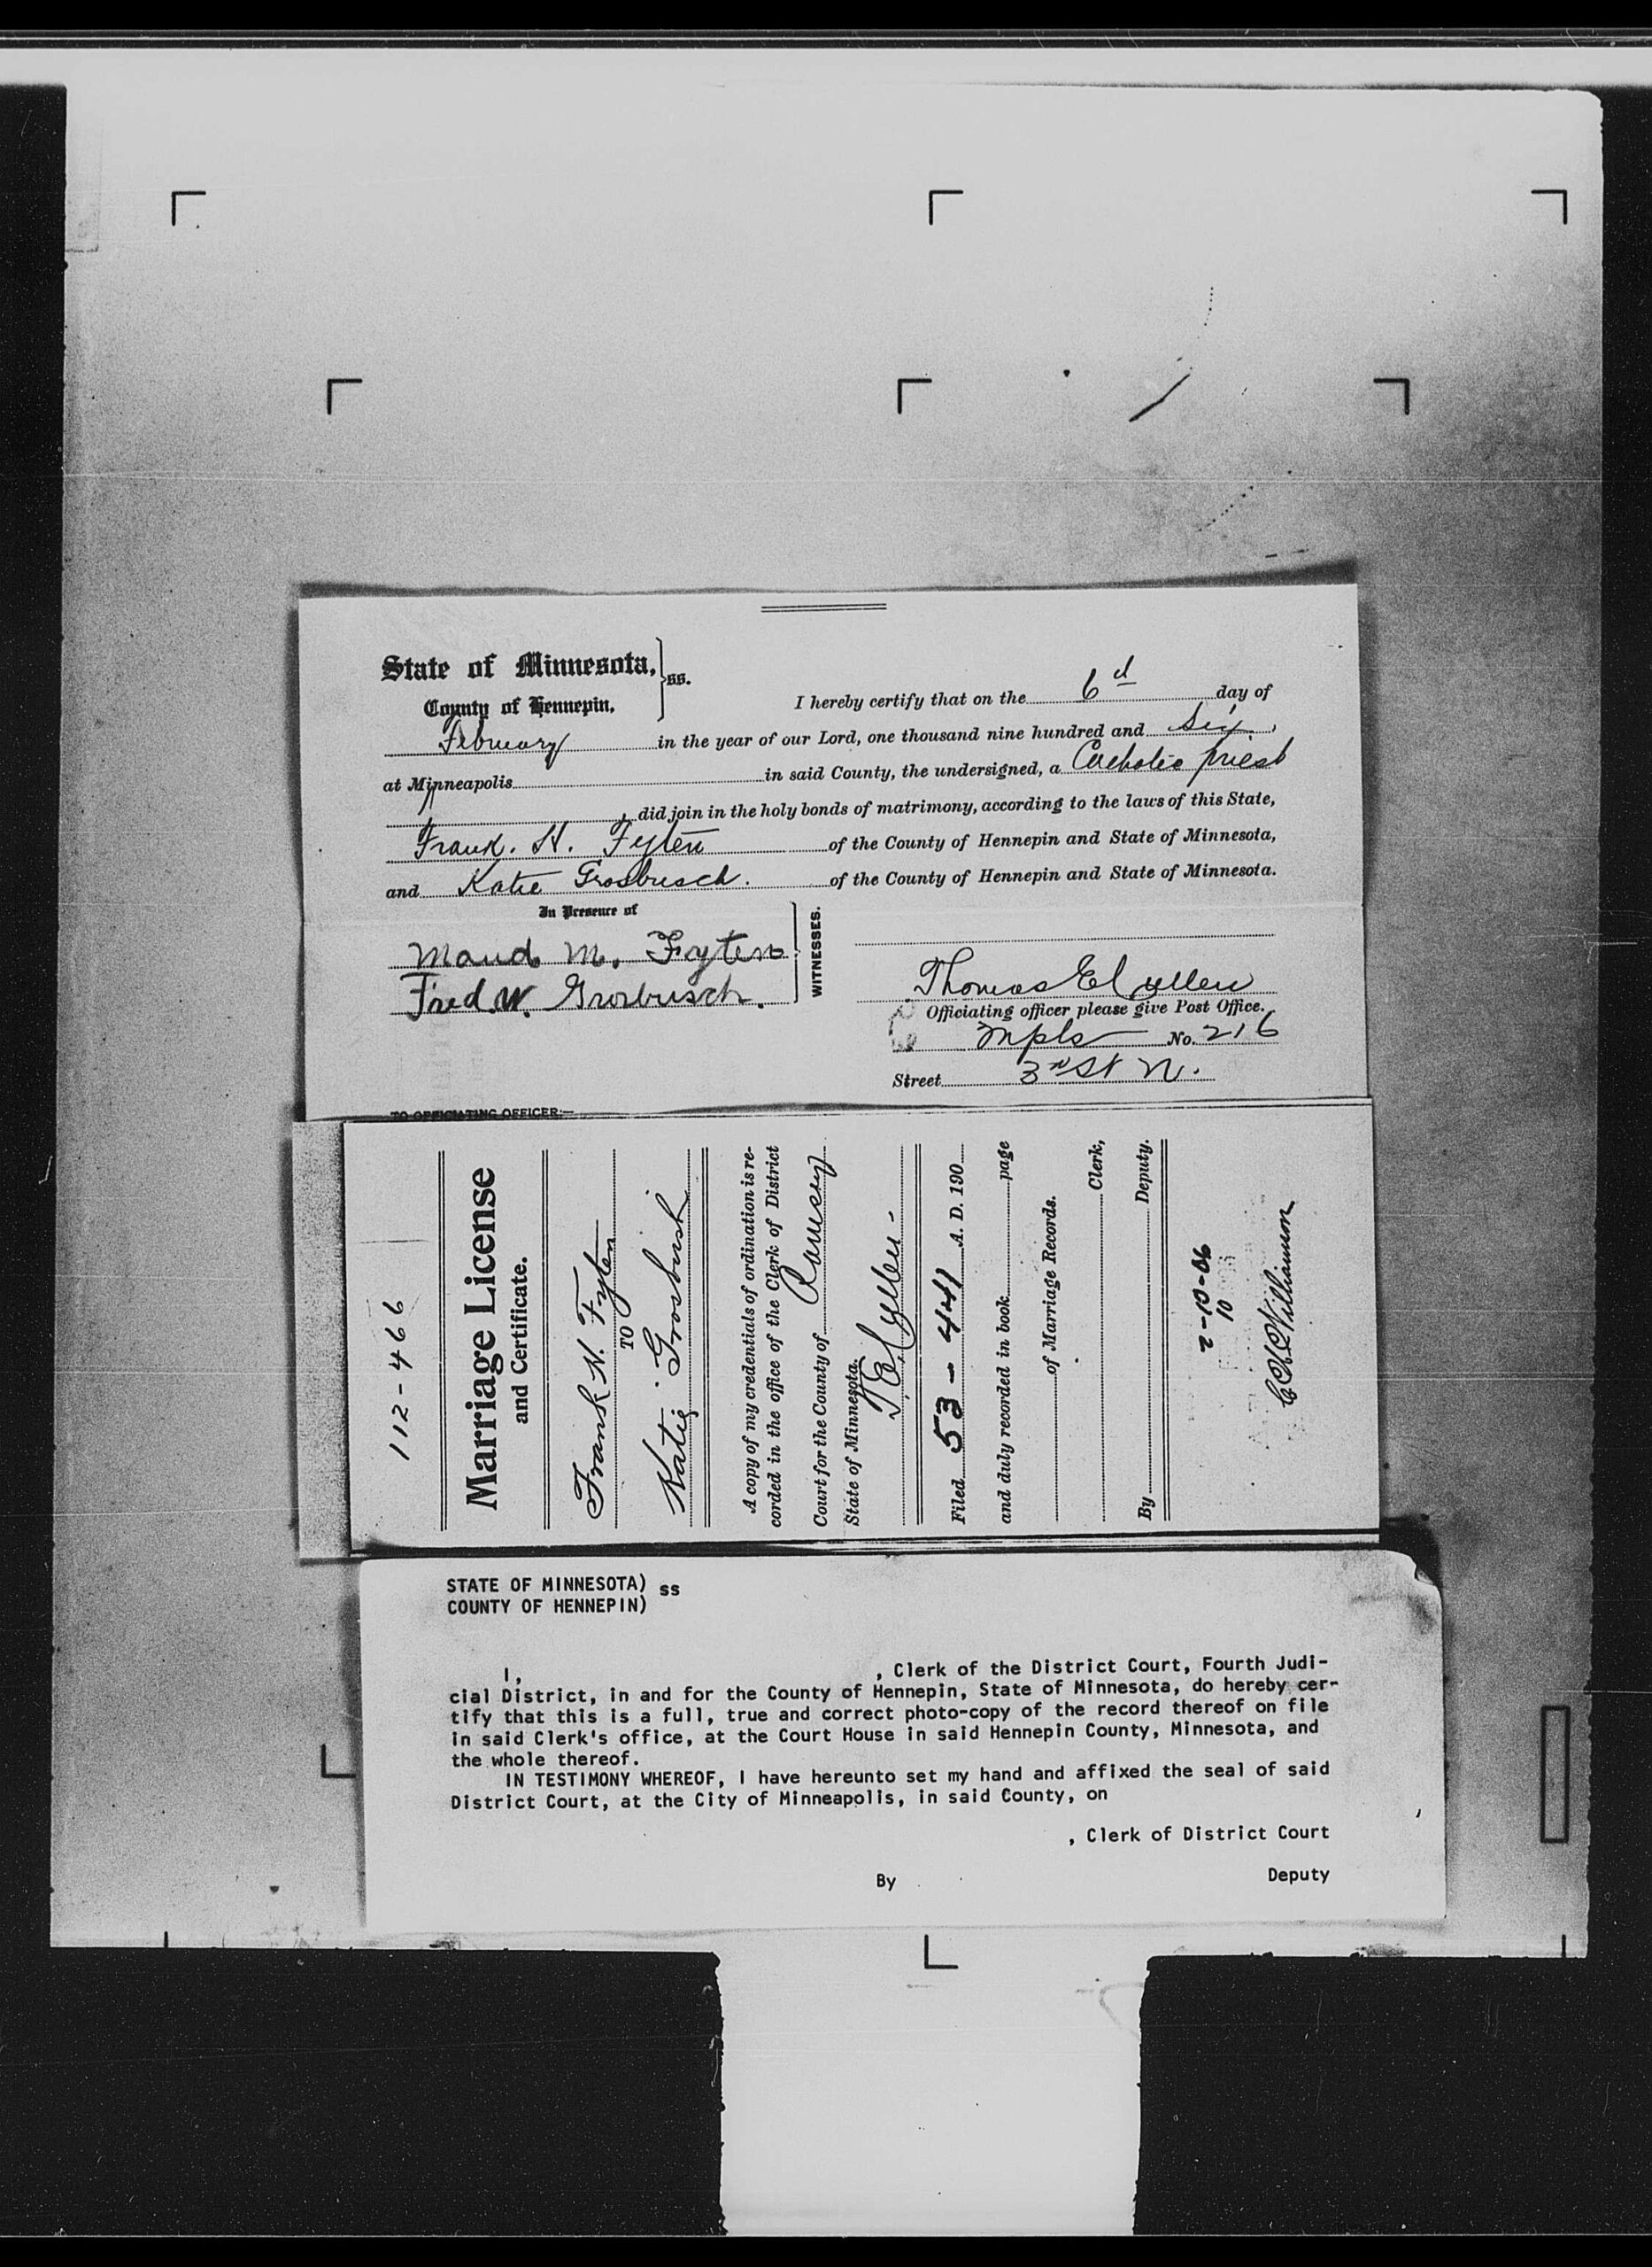 State of Minnesota, } ss.
County of Hennepin,
I hereby certify that on the 6d day of
February in the year of our Lord, one thousand nine hundred and Six,
at Minneapolis in said County, the undersigned, a Catholic priest
, did join in the holy bonds of matrimony, according to the laws of this State,
Frank. H. Fyten of the County of Hennepin and State of Minnesota,
and Katie Grosbusch. of the County of Hennepin and State of Minnesota.
In Presence of
Maud M. Fyten
Fred W. Grosbusch.
WITNESSES.
Thomas E Cullen
Officiating officer please give Post Office.
Mpls No. 216
Street 3rd St N.
TO OFFICIATING OFFICER:—
112-466
Marriage License
and Certificate.
Frank H. Fyten
TO
Katie Grosbusch
A copy of my credentials of ordination is re-
corded in the office of the Clerk of District
Court for the County of Ramsey
State of Minnesota.
T. E. Cullen.
Filed 53-441 A. D. 190
and duly recorded in book page
of Marriage Records.
Clerk,
By Deputy.
2-10-06
10
STATE OF MINNESOTA) ss
COUNTY OF HENNEPIN)
I, , Clerk of the District Court, Fourth Judi-
cial District, in and for the County of Hennepin, State of Minnesota, do hereby cer-
tify that this is a full, true and correct photo-copy of the record thereof on file
in said Clerk's office, at the Court House in said Hennepin County, Minnesota, and
the whole thereof.
IN TESTIMONY WHEREOF, I have hereunto set my hand and affixed the seal of said
District Court, at the City of Minneapolis, in said County, on ,
, Clerk of District Court
By Deputy